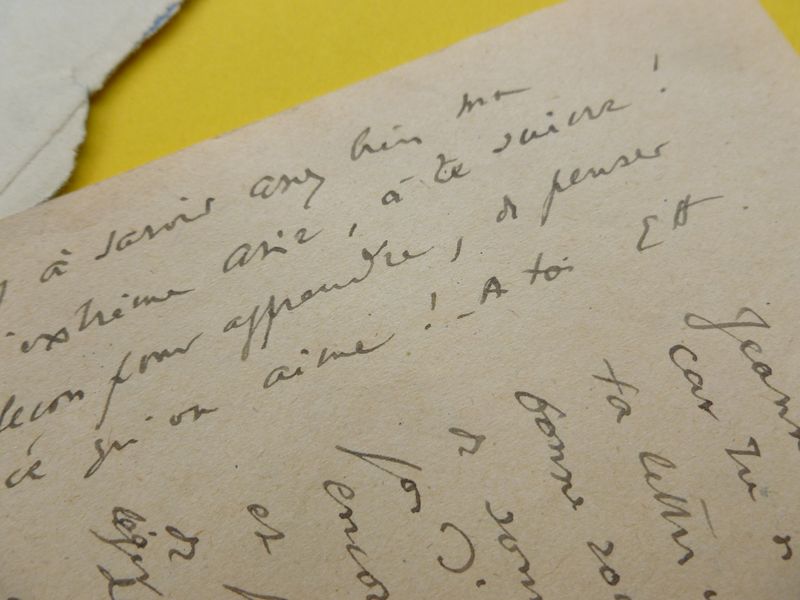 à savoir assez bien ma
extrême asie, à te suivre !
leçon pour apprendre, de penser
ce qu'on aime ! - A toi EH.
Jeann
car tu n
ta lettre
bonne
de som
Je
encor
et
de